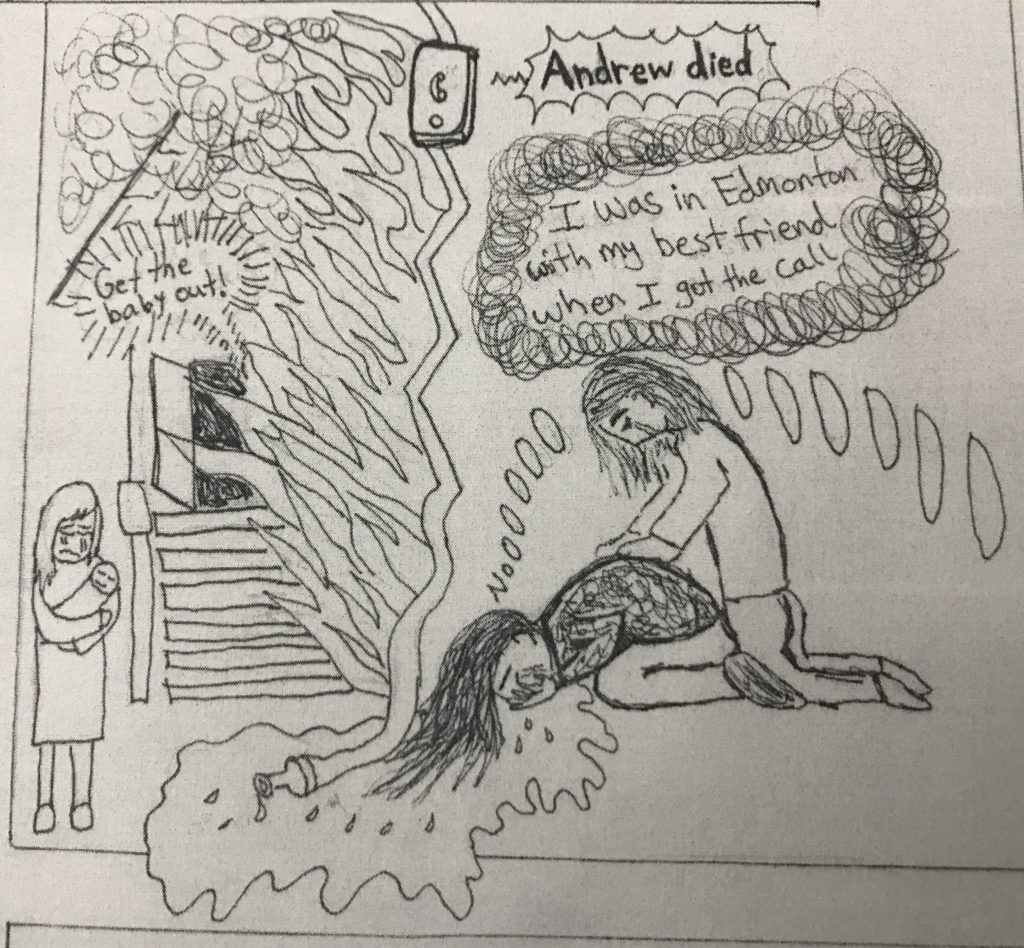 Andrew died
I was in Edmonton
with my best friend
when I got the call
Get the
baby out!
NOOOOOO